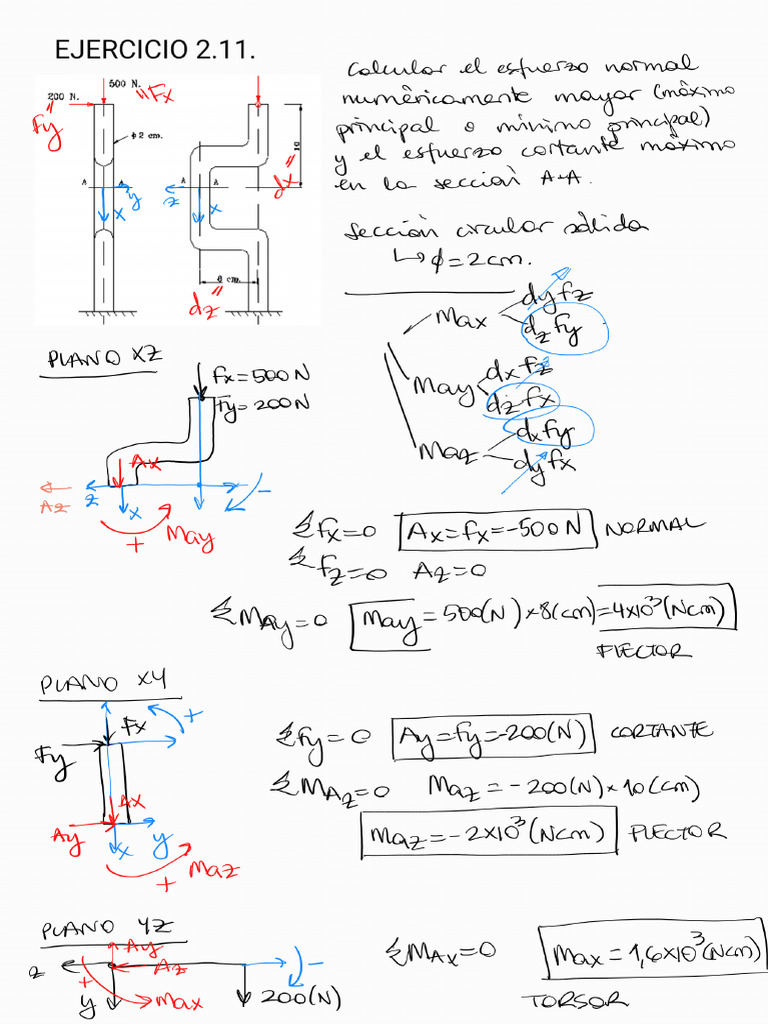 EJERCICIO 2.11.
500 N.
"Fx
200 N.
Fy"
φ 2 cm.
10
dx"
A A
y
x
A A
z
x
8 cm.
dz"
Calcular el esfuerzo normal
numéricamente mayor (máximo
principal o mínimo principal)
y el esfuerzo cortante máximo
en la sección A-A.
Sección circular sólida
↳ φ=2cm.
Max
dyfz
dzfy
May
dxfz
dzfx
Maz
dxfy
dyfx
PLANO XZ
Fx=500N
Fy=200N
Ax
Az
z
x
-
+
May
ΣFx=0 Ax=fx=-500N NORMAL
ΣFz=0 Az=0
ΣMAy=0 May=500(N)×8(cm)=4×10³(Ncm)
FLECTOR
PLANO XY
Fx
+
Fy
Ax
Ay
y
x
Maz
+
ΣFy=0 Ay=fy=-200(N) CORTANTE
ΣMAz=0 Maz=-200(N)×10(cm)
Maz=-2×10³(Ncm) FLECTOR
PLANO YZ
Ay
z
Az
-
+
y
Max
200(N)
ΣMAx=0 Max=1,6×10³(Ncm)
TORSOR